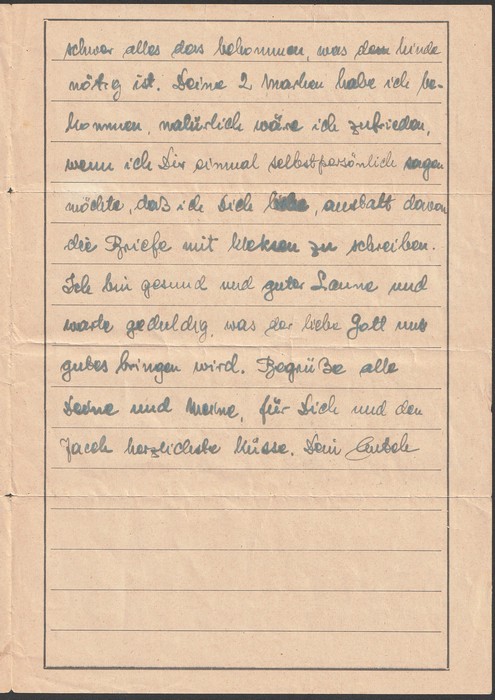 schwer alles das bekommen, was dem Kinde
nötig ist. Deine 2 Marken habe ich be-
kommen, natürlich wäre ich zufrieden,
wenn ich Dir einmal selbstpersönlich sagen
möchte, daß ich Dich liebe, anstatt davon
die Briefe mit kleksen zu schreiben.
Ich bin gesund und guter Laune und
warte geduldig, was der liebe Gott uns
gutes bringen wird. Begrüße alle
Deine und Meine, für Dich und den
Jacob herzlichste Küsse. Dein